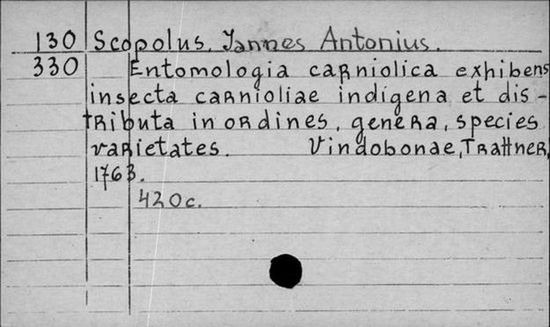 130 Scopolus, Jannes Antonius.
330 Entomologia carniolica exhibens
insecta carnioliae indigena et dis-
tributa in ordines, genera, species
varietates. Vindobonae, Trattner,
1763.
420c.